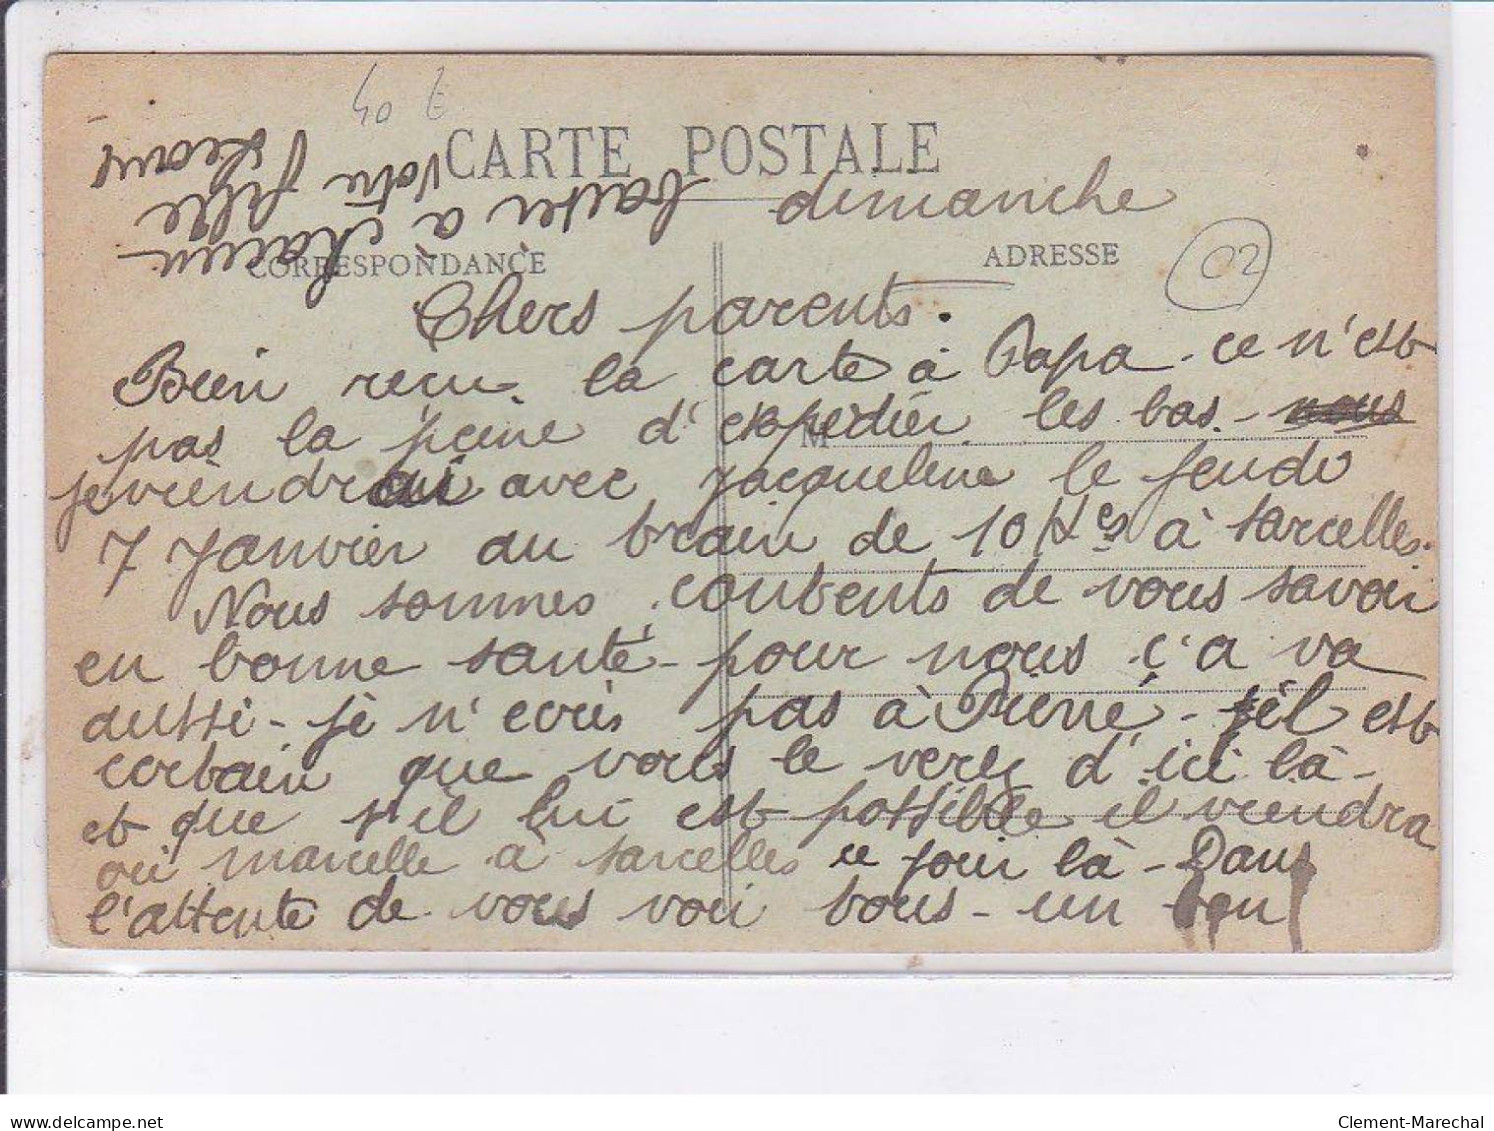 40 €
CARTE POSTALE
dimanche
CORRESPONDANCE
ADRESSE
02
Chers parents.
Bien reçu la carte à Papa - ce n'est
pas la peine d'expédier les bas - nous
je viendrai avec Jacqueline le jeudi
M
7 Janvier au train de 10 Hes à Sarcelles.
Nous sommes contents de vous savoir
en bonne santé - pour nous ç'a va
aussi - je n'écris pas à Pierre - il est
certain que vous le verez d'ici là -
et que s'il lui est possible il viendra
ou marcelle à Sarcelles ce jour là - Dans
l'attente de vous voir tous - un bon
baiser à chacun
Votre fille
delcampe.net
Clement-Marechal